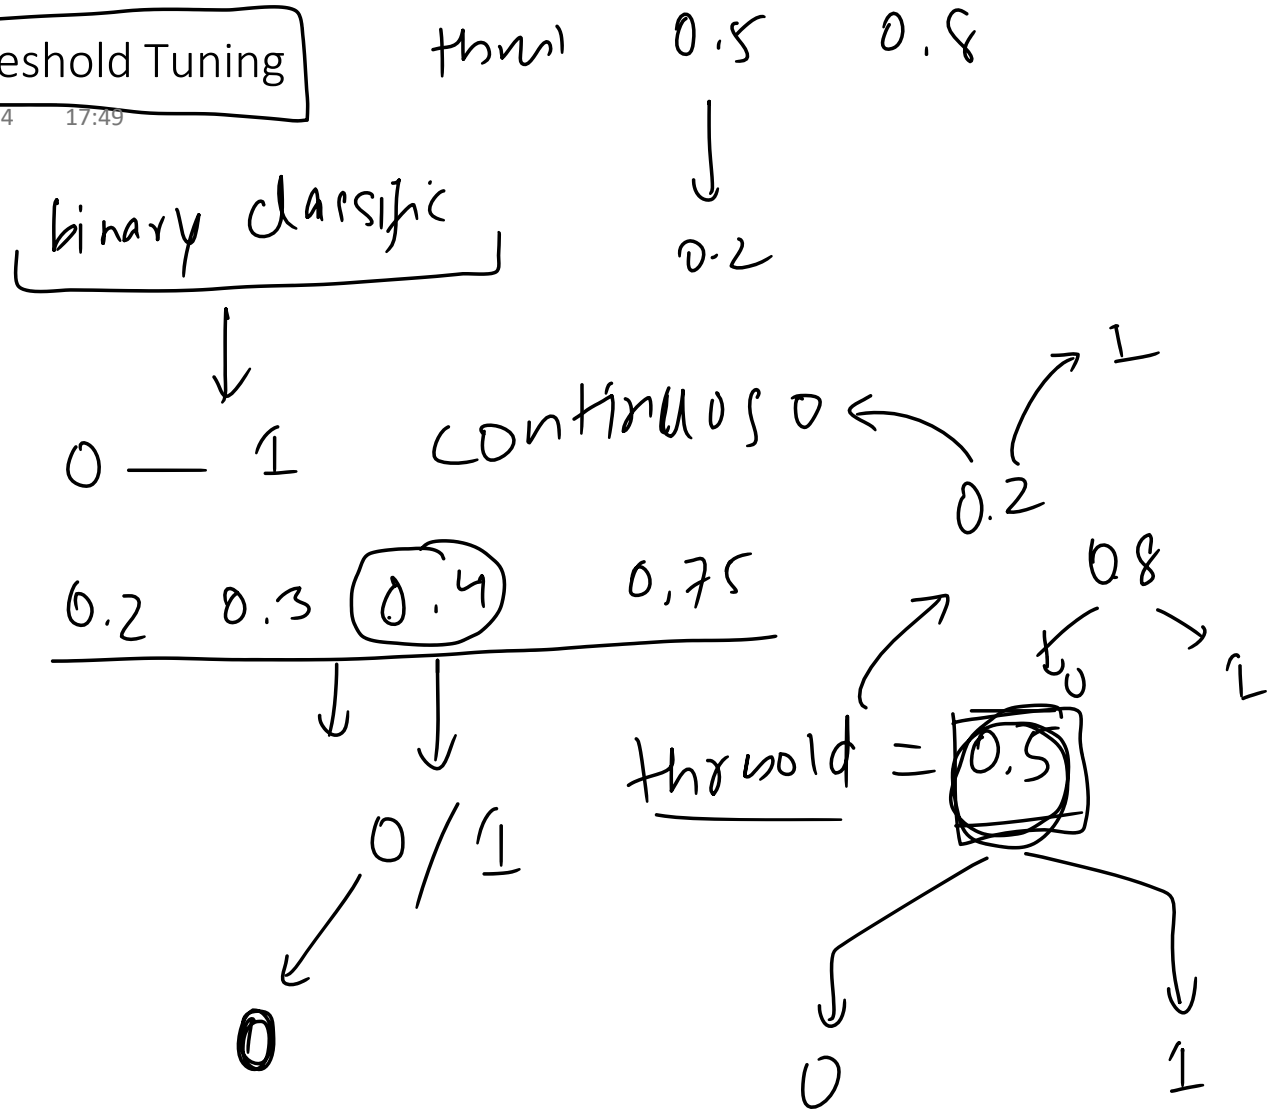 eshold Tuning
4 17:49
0.5 0.8
0.2
binary classific
1
0 — 1
continuos 0
0.2
0.8
0.2 0.3 0.4 0.75
0 1
thrsold = 0.5
0/1
0
0 1